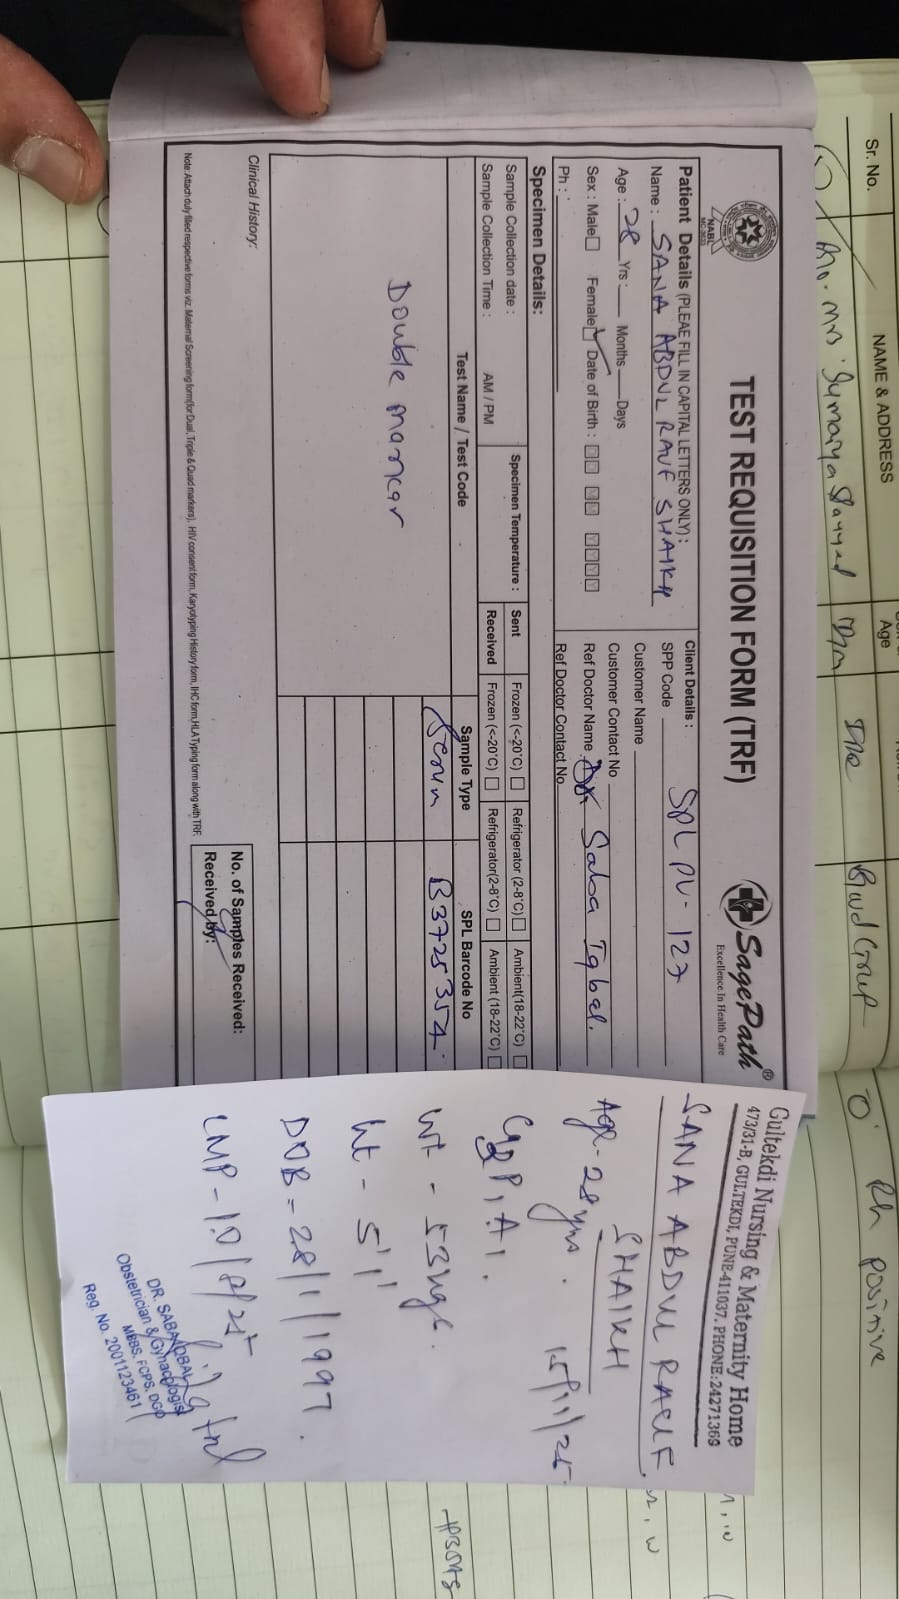 Sr. No. NAME & ADDRESS Age
Sumaiya Sayyed
Blood Group O Rh positive
TEST REQUISITION FORM (TRF)
NABL
SagePath®
Excellence In Health Care
Patient Details (PLEAE FILL IN CAPITAL LETTERS ONLY):
Name : SANA ABDUL RAUF SHAIKH
Age : 28 Yrs : Months Days
Sex : Male Female ✓ Date of Birth : DD MM YYYY
Ph :
Client Details :
SPP Code SPL PU - 127
Customer Name
Customer Contact No
Ref Doctor Name Dr Saba Iqbal.
Ref Doctor Contact No
Specimen Details:
Sample Collection date :
Sample Collection Time : AM / PM
Specimen Temperature :
Sent Frozen (<-20°C) Refrigerator (2-8°C) Ambient(18-22°C)
Received Frozen (<-20°C) Refrigerator(2-8°C) Ambient (18-22°C)
Test Name / Test Code Sample Type SPL Barcode No
Double marker Serum B3725354
Clinical History:
No. of Samples Received:
Received by:
Note: Attach duly filled respective forms viz. Maternal Screening form(for Dual, Triple & Quad markers), HIV consent form, Karyotyping History form, IHC form, HLA Typing form along with TRF.
Gultekdi Nursing & Maternity Home
473/31-B, GULTEKDI, PUNE-411037. PHONE:24271369
SANA ABDUL RAUF
SHAIKH
Age - 28 yrs. 15/11/25
P1 A1.
Wt - 53 kgs.
Ht - 5'1"
DOB = 28/1/1997.
LMP - 10/8/25
DR. SABA IQBAL
Obstetrician & Gynacologist
MBBS, FCPS, DGO
Reg. No. 2001123461